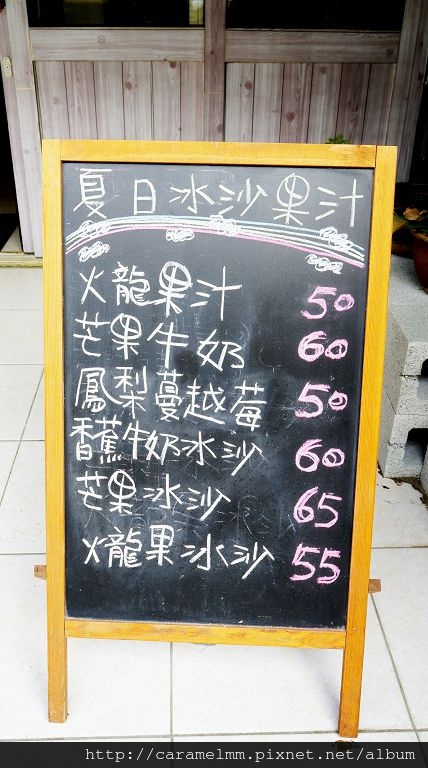 夏日冰沙果汁
火龍果汁 50
芒果牛奶 60
鳳梨蔓越莓 50
香蕉牛奶冰沙 60
芒果冰沙 65
火龍果冰沙 55
http://caramelmm.pixnet.net/album